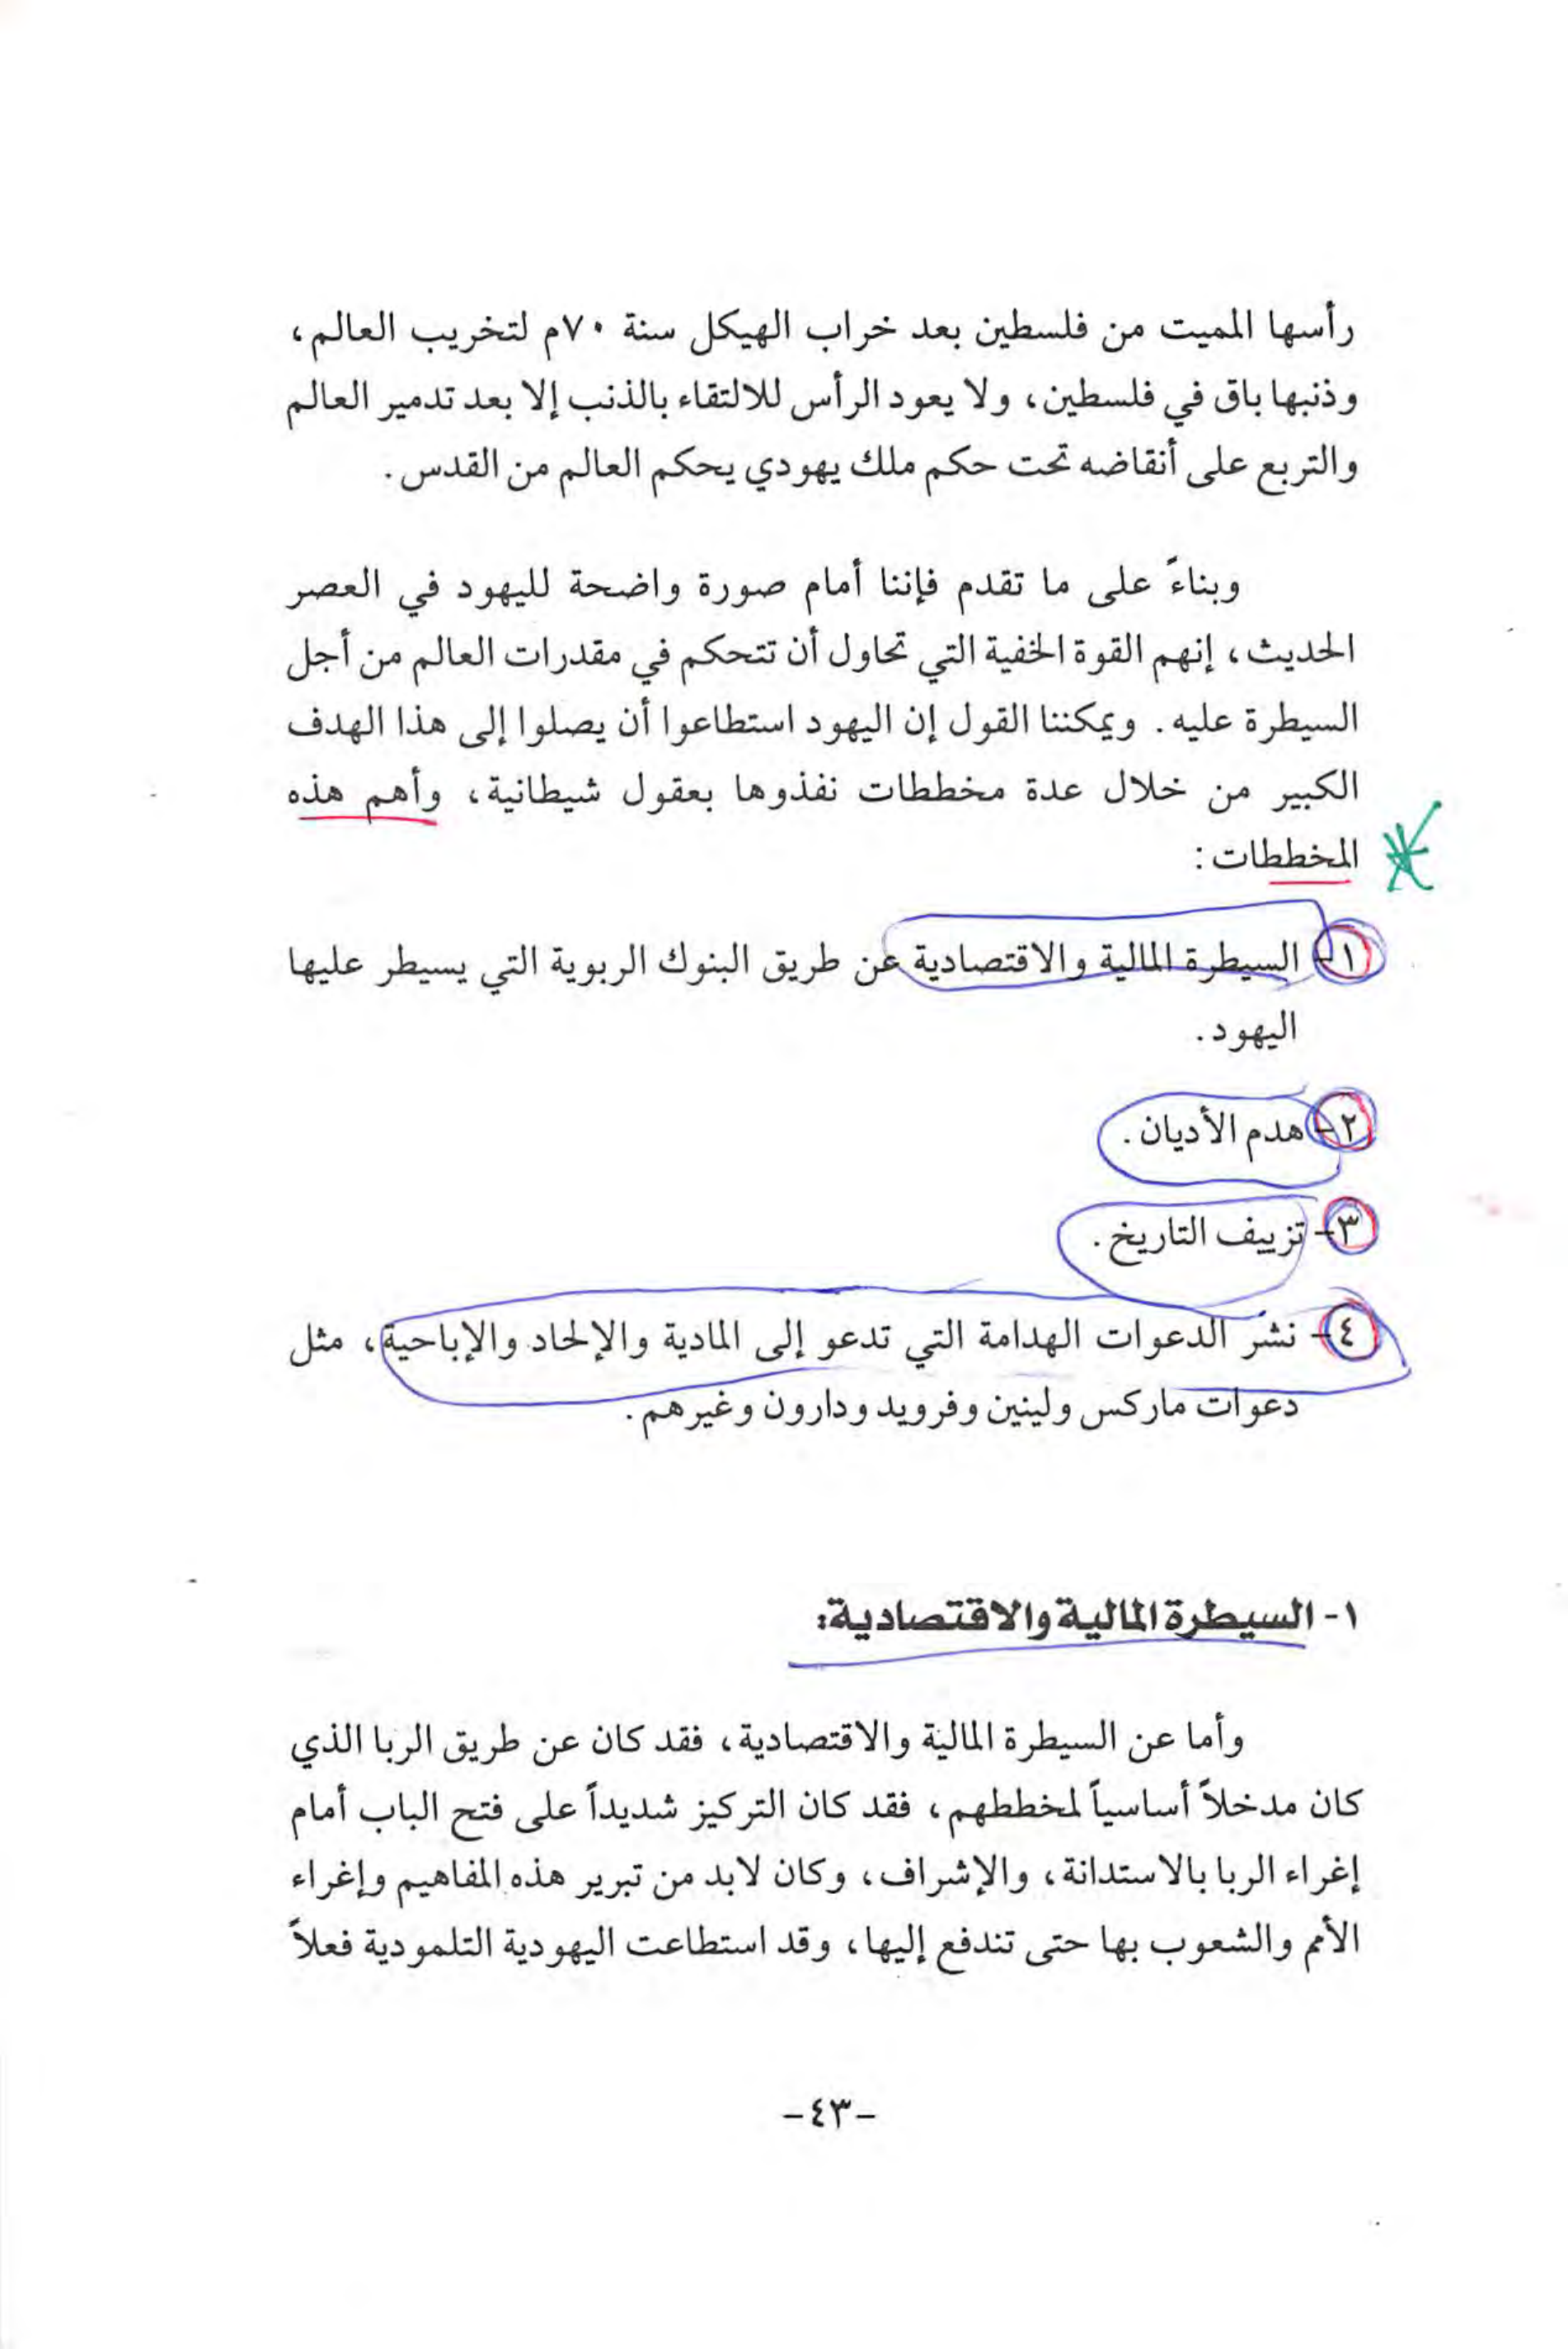 رأسها المميت من فلسطين بعد خراب الهيكل سنة ٧٠م لتخريب العالم،
وذنبها باق في فلسطين، ولا يعود الرأس للالتقاء بالذنب إلا بعد تدمير العالم
والتربع على أنقاضه تحت حكم ملك يهودي يحكم العالم من القدس.
وبناءً على ما تقدم فإننا أمام صورة واضحة لليهود في العصر
الحديث، إنهم القوة الخفية التي تحاول أن تتحكم في مقدرات العالم من أجل
السيطرة عليه. ويمكننا القول إن اليهود استطاعوا أن يصلوا إلى هذا الهدف
الكبير من خلال عدة مخططات نفذوها بعقول شيطانية، وأهم هذه
المخططات:
١- السيطرة المالية والاقتصادية عن طريق البنوك الربوية التي يسيطر عليها
اليهود.
٢- هدم الأديان.
٣- تزييف التاريخ.
٤- نشر الدعوات الهدامة التي تدعو إلى المادية والإلحاد والإباحية، مثل
دعوات ماركس ولينين وفرويد ودارون وغيرهم.
١- السيطرة المالية والاقتصادية:
وأما عن السيطرة المالية والاقتصادية، فقد كان عن طريق الربا الذي
كان مدخلاً أساسياً لمخططهم، فقد كان التركيز شديداً على فتح الباب أمام
إغراء الربا بالاستدانة، والإشراف، وكان لابد من تبرير هذه المفاهيم وإغراء
الأمم والشعوب بها حتى تندفع إليها، وقد استطاعت اليهودية التلمودية فعلاً
-٤٣-